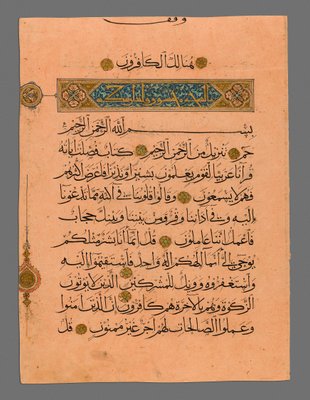 وقف
هنالك الكافرون
بسم الله الرحمن الرحيم
حم تنزيل من الرحمن الرحيم كتاب فصلت اياته
قرآنا عربيا لقوم يعلمون بشيرا ونذيرا فاعرض اكثرهم
فهم لا يسمعون وقالوا قلوبنا في اكنة مما تدعونا
اليه وفي آذاننا وقر ومن بيننا وبينك حجاب
فاعمل اننا عاملون قل انما انا بشر مثلكم
يوحى الي انما الهكم اله واحد فاستقيموا اليه
واستغفروه وويل للمشركين الذين لا يؤتون
الزكوة وهم بالاخرة هم كافرون ان الذين امنوا
وعملوا الصالحات لهم اجر غير ممنون قل